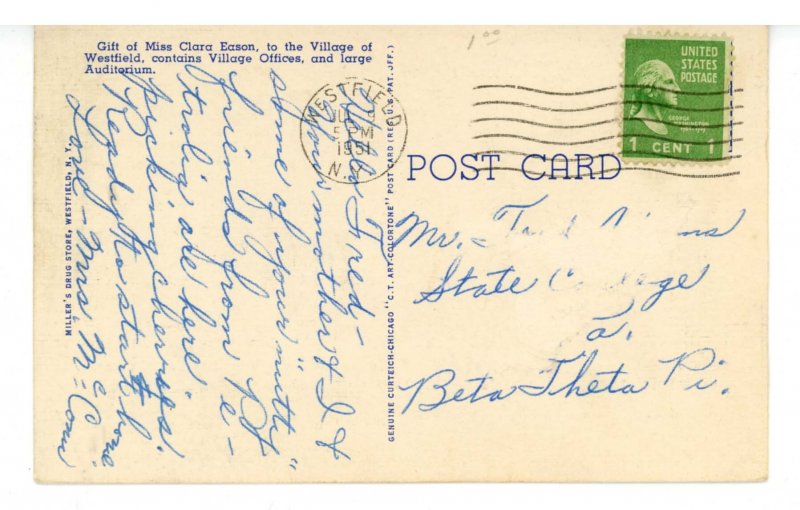 1.00
Gift of Miss Clara Eason, to the Village of
Westfield, contains Village Offices, and large
Auditorium.
WESTFIELD
JUL
5 PM
1951
N.Y.
UNITED
STATES
POSTAGE
GEORGE
WASHINGTON
1 CENT 1
POST CARD
Hello Fred -
Your mother & I &
some of your "nutty"
friends from Pt
are here
picking cherries.
Ready to start home
Love - Mrs. Mc
Mr.
State College
Pa.
Beta Theta Pi.
MILLER'S DRUG STORE, WESTFIELD, N. Y.
GENUINE CURTEICH-CHICAGO "C.T. ART-COLORTONE" POST CARD (REG. U.S. PAT. OFF.)